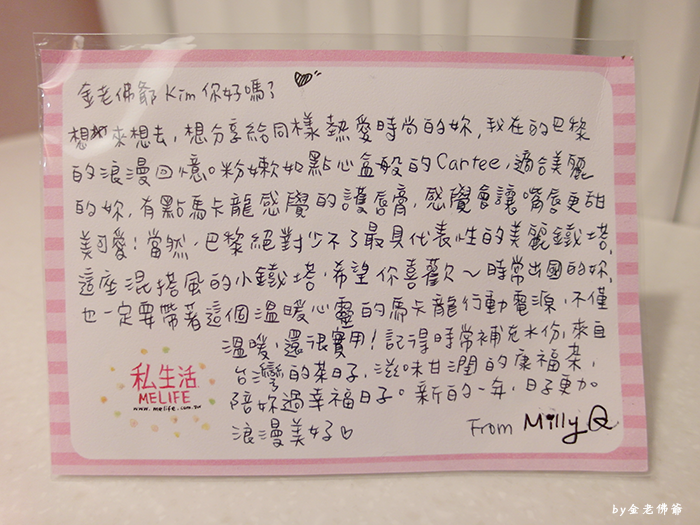 金老佛爺 Kim 你好嗎?
想來想去，想分享給同樣熱愛時尚的妳，我在的巴黎
的浪漫回憶。粉嫩如點心盒般的Cartee，適合美麗
的妳，有點馬卡龍感覺的護唇膏，感覺會讓嘴唇更甜
美可愛！當然，巴黎絕對少不了最具代表性的美麗鐵塔，
這座混搭風的小鐵塔，希望你喜歡～時常出國的妳，
也一定要帶著這個溫暖心靈的馬卡龍行動電源，不僅
溫暖，還很實用！記得時常補充水份，來自
台灣的茶日子，滋味甘潤的康福茶，
陪妳過幸福日子。新的一年，日子更加
浪漫美好♡
From Milly Q
私生活
MELIFE
www.melife.com.tw
by金老佛爺